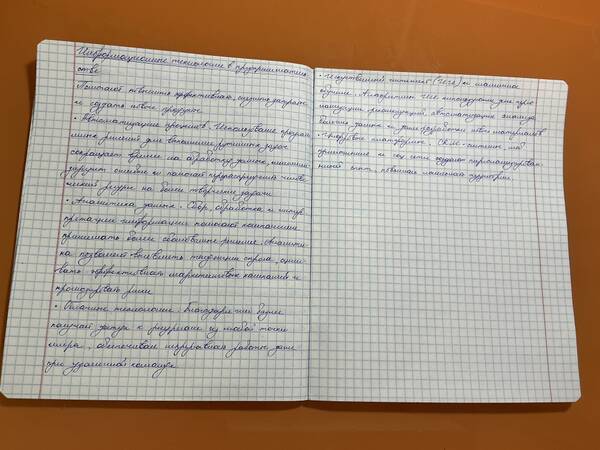 Информационные технологии в предпринимательстве
стве
Помогают повысить эффективность, снизить затраты
и создать новые продукты
• Автоматизация процессов. Использование программ
много решений для выполнения рутинных задач
сокращает время на обработку данных, минимизи
зирует ошибки и помогает предпринять челов
ческий ресурс на более творческие задачи
• Аналитика данных. Сбор, обработка и интер
претация информации помогают компаниям
принимать более обоснованные решения. Аналити
ка позволяет выявлять тенденции спроса, оцени
вать эффективность маркетинговых кампаний и
прогнозировать риски
• Облачные технологии. Благодаря им бизнес
получает доступ к ресурсам из любой точки
мира, обеспечивая непрерывность работы даже
при удаленной команде
• Искусственный интеллект (ИИ) и машинное
обучение. Алгоритмы ИИ используются для
рекомендаций, автоматизации анализа
больших данных и даже разработки новых материалов
• Цифровые платформы. Онлайн-
приложения и соц сети создают
ный опыт, повышая лояльность аудитории.